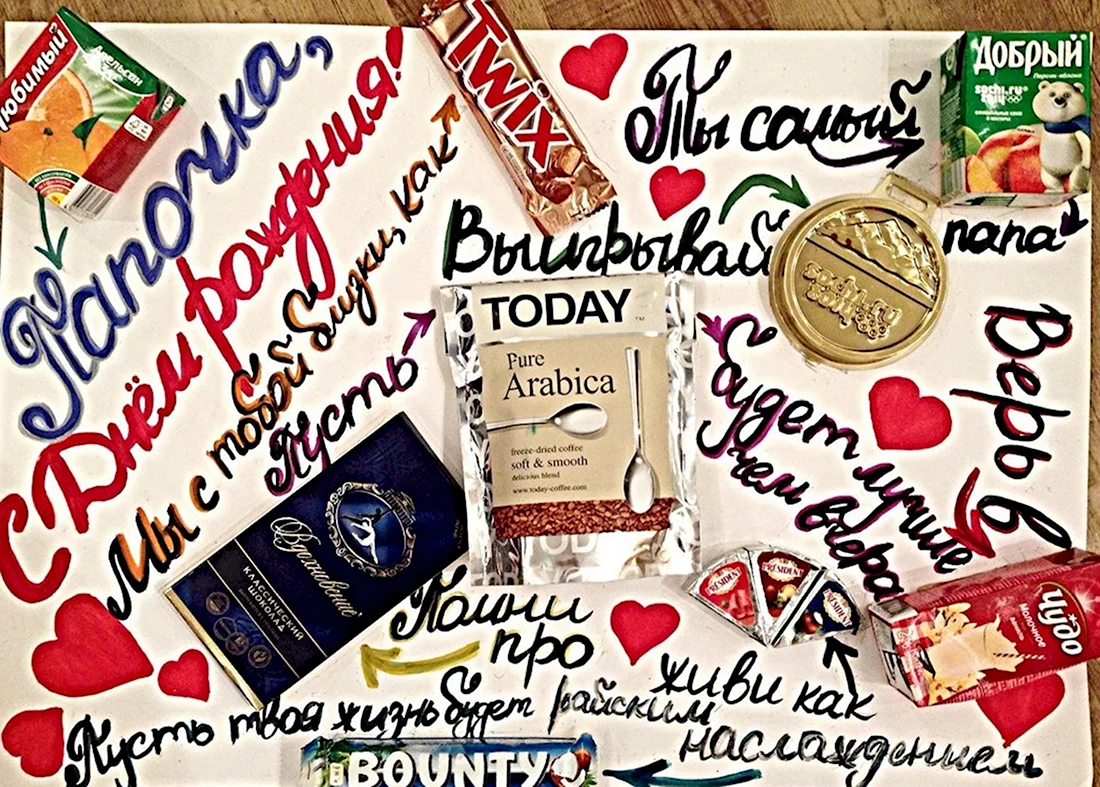 Любимый
Апельсин
Папочка,
С Днём рождения!
Мы с тобой близки, как
TWIX
Ты самый
Добрый
Персик-яблоко
sochi.ru
2014
папа
Выигрывай
sochi.ru
2014
Пусть
TODAY
Pure
Arabica
freeze-dried coffee
soft & smooth
delicious blend
www.today-coffee.com
будет лучше
чем вчера
Верь в
Чудо
МОЛОЧНОЕ
Помни
про
Вдохновение
КЛАССИЧЕСКИЙ
ШОКОЛАД
живи как
PRÉSIDENT
PRÉSIDENT
PRÉSIDENT
Пусть твоя жизнь будет райским
наслаждением
BOUNTY